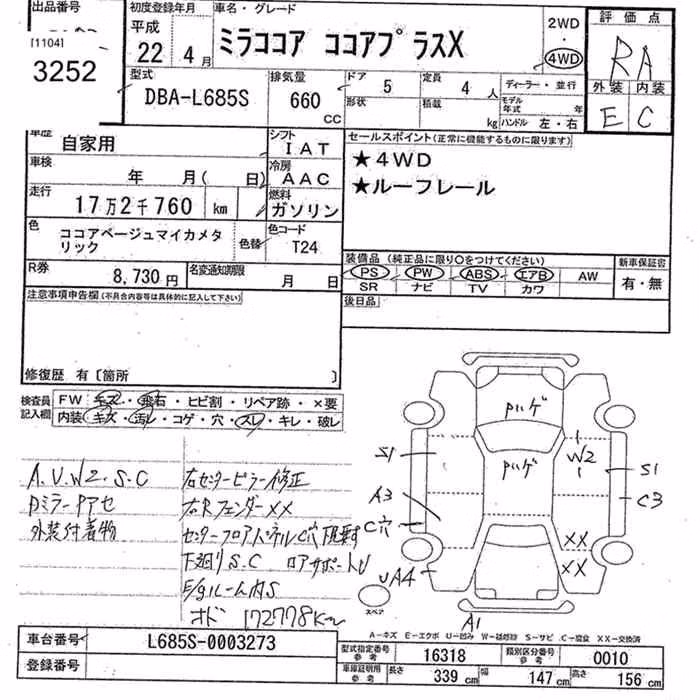 出品番号
[1104]
3252
初度登録年月
平成
22 4 月
車名・グレード
ミラココア ココアプラスX
2WD
・
4WD
評価点
RA
外装 内装
E C
型式
DBA-L685S
排気量
660
CC
ドア 5
形状
定員 4 人
積載 kg
ディーラー・並行
モデル年式 年
ハンドル 左・右
車歴
自家用
シフト
IAT
車検
年 月( 日)
冷房
AAC
走行
17万2千760 km
燃料
ガソリン
色
ココアベージュマイカメタリック
色替
色コード
T24
R券
8,730円
名変通知期限
月 日
セールスポイント(正常に機能するものに限ります)
★4WD
★ルーフレール
装備品 (純正品に限り○をつけてください)
PS PW ABS エアB AW
SR ナビ TV カワ
新車保証書
有・無
後日品
注意事項申告欄(不具合内容等は具体的に記入して下さい)
修復歴 有〔箇所 〕
検査員記入欄
FW キズ・飛石・ヒビ割・リペア跡・×要
内装 キズ・汚レ・コゲ・穴・スレ・キレ・破レ
A.U.W2.S.C
Dミラーアセ
外装付着物
右センターピラー修正
右Rフェンダー××
センターフロアパネルC穴
下廻りS.C ロアサポートU
E/gルーム内S
オド 172778Km
Pハゲ
Pハゲ
S1
W2
S1
A3
C3
C穴
××
××
UA4
A1
スペア
A-キズ E-エクボ U-凹ミ W-波跡 S-サビ C-腐食 XX-交換済
車台番号
L685S-0003273
登録番号
型式指定番号 参考
16318
類別区分番号 参考
0010
車庫証明用 参考
長さ 339 cm 幅 147 cm 高さ 156 cm